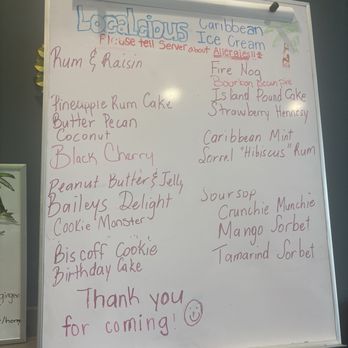 Localicious Caribbean
Ice Cream
Please tell Server about Allergies!!
Rum & Raisin
Pineapple Rum Cake
Butter Pecan
Coconut
Black Cherry
Peanut Butter & Jelly
Baileys Delight
Cookie Monster
Biscoff Cookie
Birthday Cake
Fire Nog
Bourbon Pecan Pie
Island Pound Cake
Strawberry Hennesy
Caribbean Mint
Sorrel "Hibiscus" Rum
Soursop
Crunchie Munchie
Mango Sorbet
Tamarind Sorbet
Thank you
for coming!
ginger